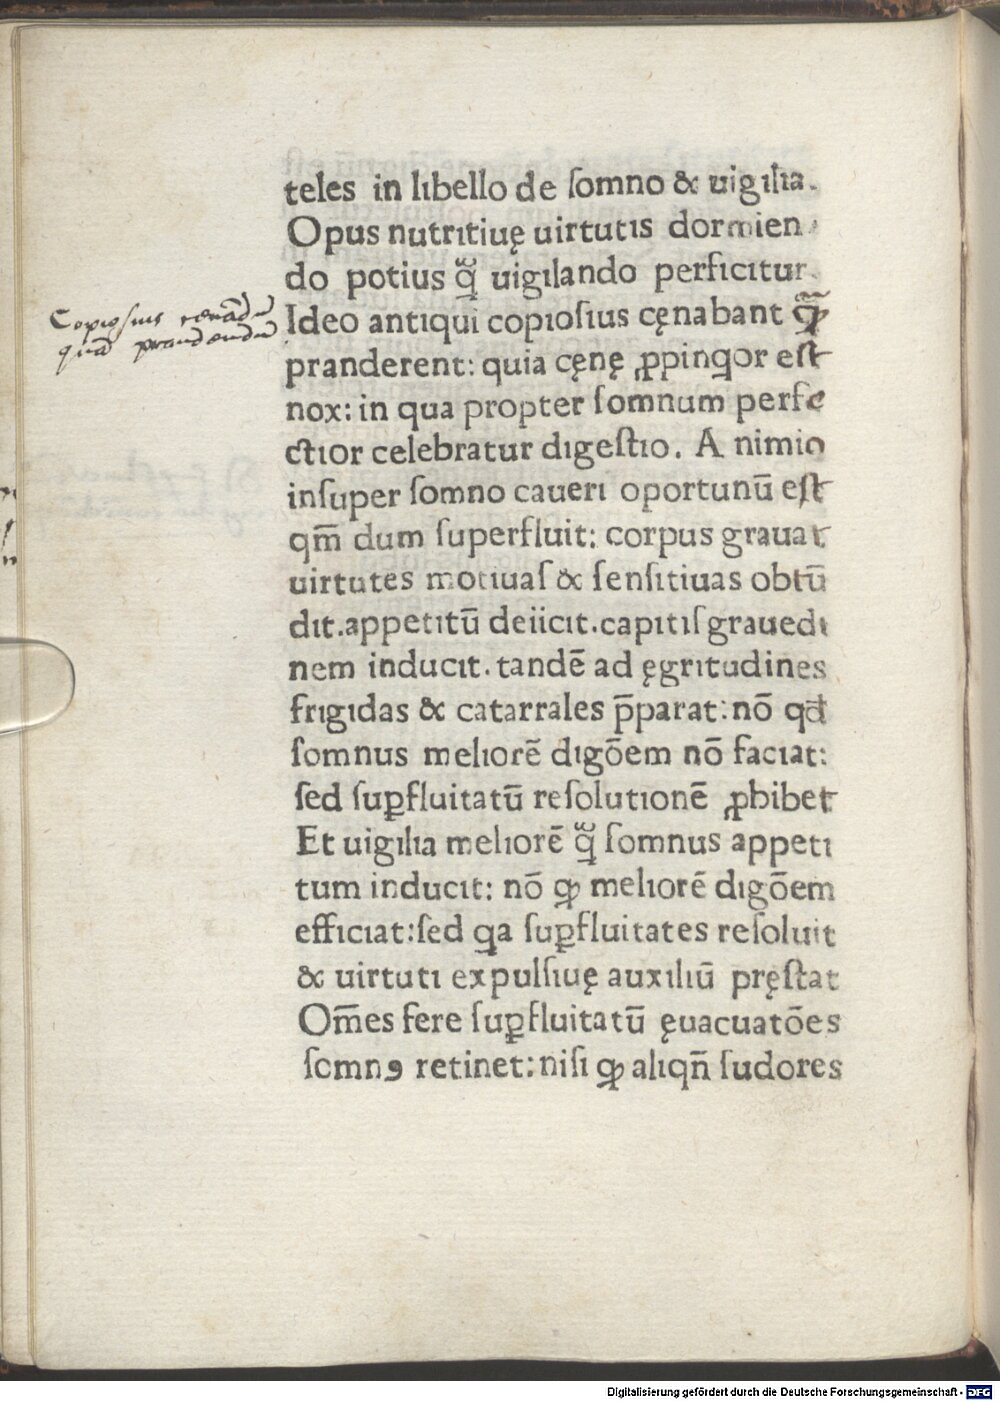 teles in libello de ſomno & uigilia.
Opus nutritiuę uirtutis dormien
do potius q̃ uigilando perficitur.
Copiosius cenãdũ
Ideo antiqui copioſius cęnabant ꝙ̃
quã prandendũ
pranderent: quia cęnę ꝓpinqor eſt
nox: in qua propter ſomnum perfe
ctior celebratur digeſtio. A nimio
inſuper ſomno caueri oportunū eſt
qm̄ dum ſuperfluit: corpus grauat
uirtutes motiuaſ & ſenſitiuas obtū
dit.appetitū deiicit.capitiſ grauedi
nem inducit. tandē ad ęgritudines
frigidas & catarrales p̄parat: nō qđ
ſomnus meliorē digōem nō faciat:
ſed ſuꝑfluitatū reſolutionē ꝓhibet
Et uigilia meliorē q̃ ſomnus appeti
tum inducit: nō ꝙ meliorē digōem
efficiat: ſed qa ſuꝑfluitates reſoluit
& uirtuti expulſiuę auxiliū pręſtat
Om̄es fere ſuꝑfluitatū ęuacuatōes
ſomnꝰ retinet: niſi ꝙ aliqn̄ ſudores
Digitalisierung gefördert durch die Deutsche Forschungsgemeinschaft - DFG